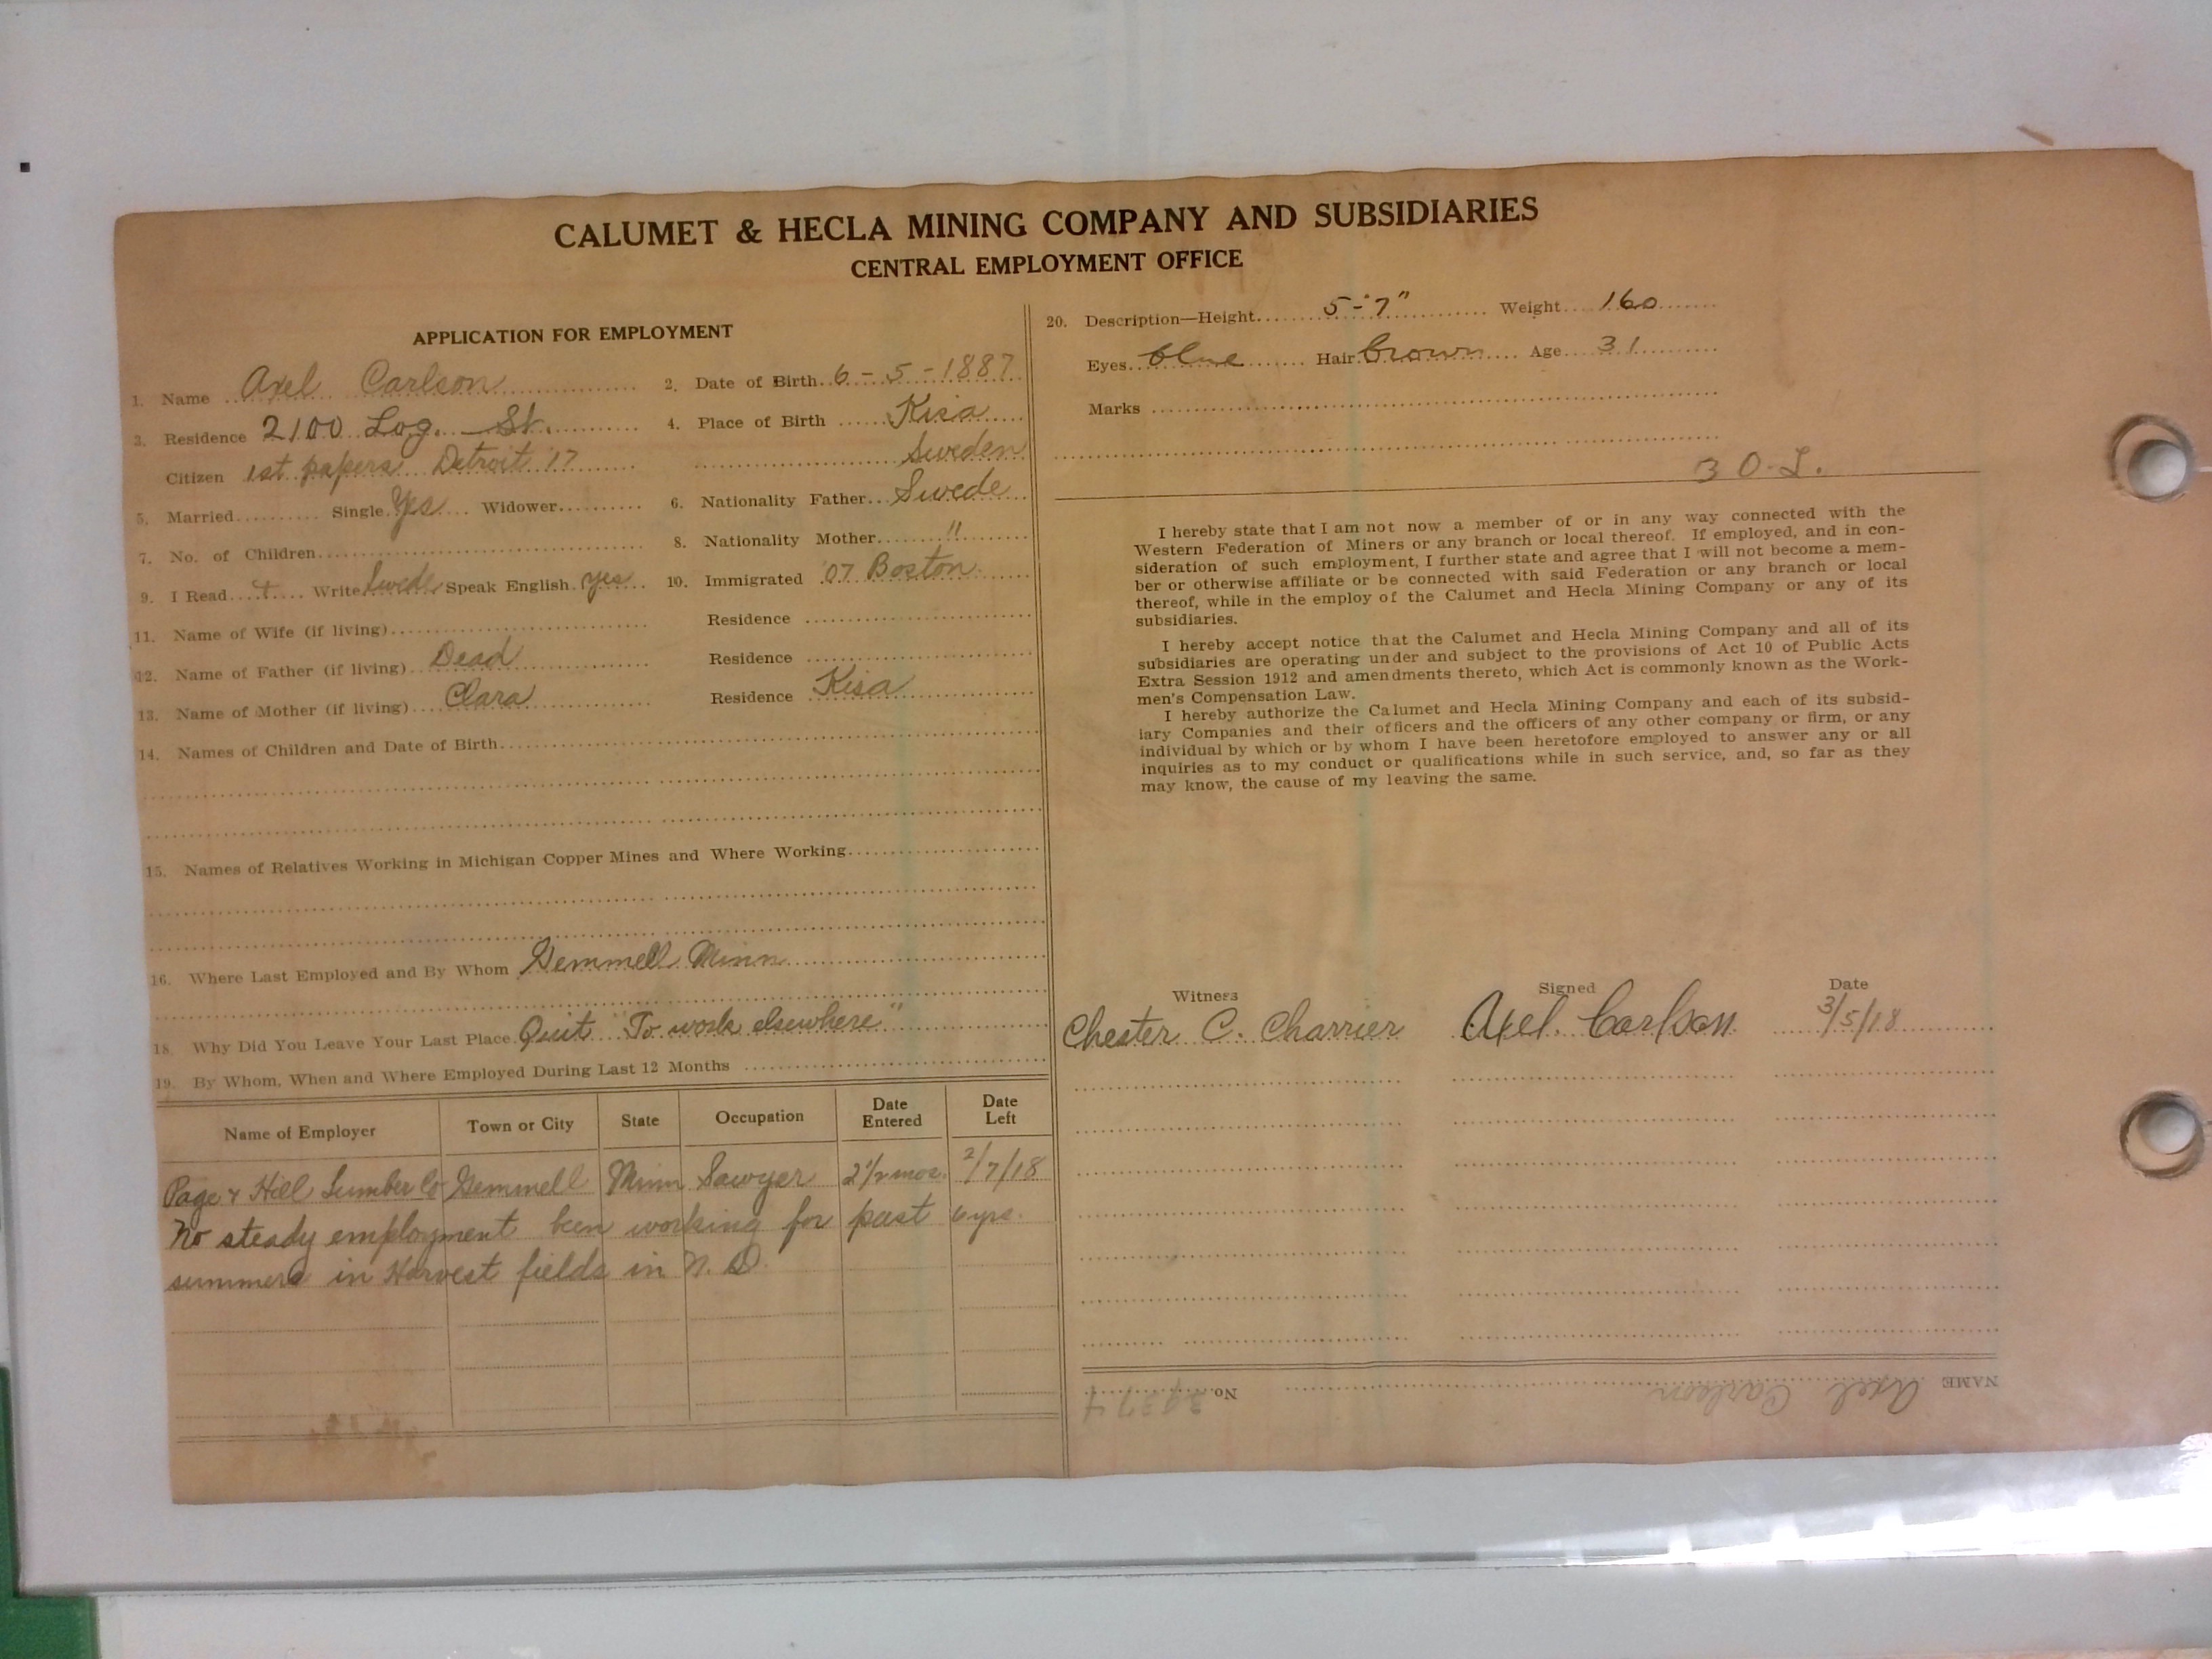 CALUMET & HECLA MINING COMPANY AND SUBSIDIARIES
CENTRAL EMPLOYMENT OFFICE
APPLICATION FOR EMPLOYMENT
1. Name Axel Carlson 2. Date of Birth 6-5-1887
3. Residence 2100 Log. St. 4. Place of Birth Kisa
Citizen 1st papers Detroit '17 Sweden
5. Married Single Yes Widower 6. Nationality Father Swede
7. No. of Children 8. Nationality Mother "
9. I Read + Write Swede Speak English yes 10. Immigrated '07 Boston
11. Name of Wife (if living) Residence
12. Name of Father (if living) Dead Residence
13. Name of Mother (if living) Clara Residence Kisa
14. Names of Children and Date of Birth
15. Names of Relatives Working in Michigan Copper Mines and Where Working
16. Where Last Employed and By Whom Gemmell Minn
18. Why Did You Leave Your Last Place Quit "To work elsewhere"
19. By Whom, When and Where Employed During Last 12 Months
Name of Employer Town or City State Occupation Date Entered Date Left
Page & Hill Lumber Co Gemmell Minn Sawyer 2 1/2 mos. 2/7/18
No steady employment been working for past 6 yrs.
summers in Harvest fields in N. D.
20. Description—Height 5-7" Weight 160
Eyes blue Hair brown Age 31
Marks
3 O.L.
I hereby state that I am not now a member of or in any way connected with the
Western Federation of Miners or any branch or local thereof. If employed, and in con-
sideration of such employment, I further state and agree that I will not become a mem-
ber or otherwise affiliate or be connected with said Federation or any branch or local
thereof, while in the employ of the Calumet and Hecla Mining Company or any of its
subsidiaries.
I hereby accept notice that the Calumet and Hecla Mining Company and all of its
subsidiaries are operating under and subject to the provisions of Act 10 of Public Acts
Extra Session 1912 and amendments thereto, which Act is commonly known as the Work-
men's Compensation Law.
I hereby authorize the Calumet and Hecla Mining Company and each of its subsid-
iary Companies and their officers and the officers of any other company or firm, or any
individual by which or by whom I have been heretofore employed to answer any or all
inquiries as to my conduct or qualifications while in such service, and, so far as they
may know, the cause of my leaving the same.
Witness Signed Date
Chester C. Charrier Axel Carlson 3/5/18
NAME Axel Carlson No.